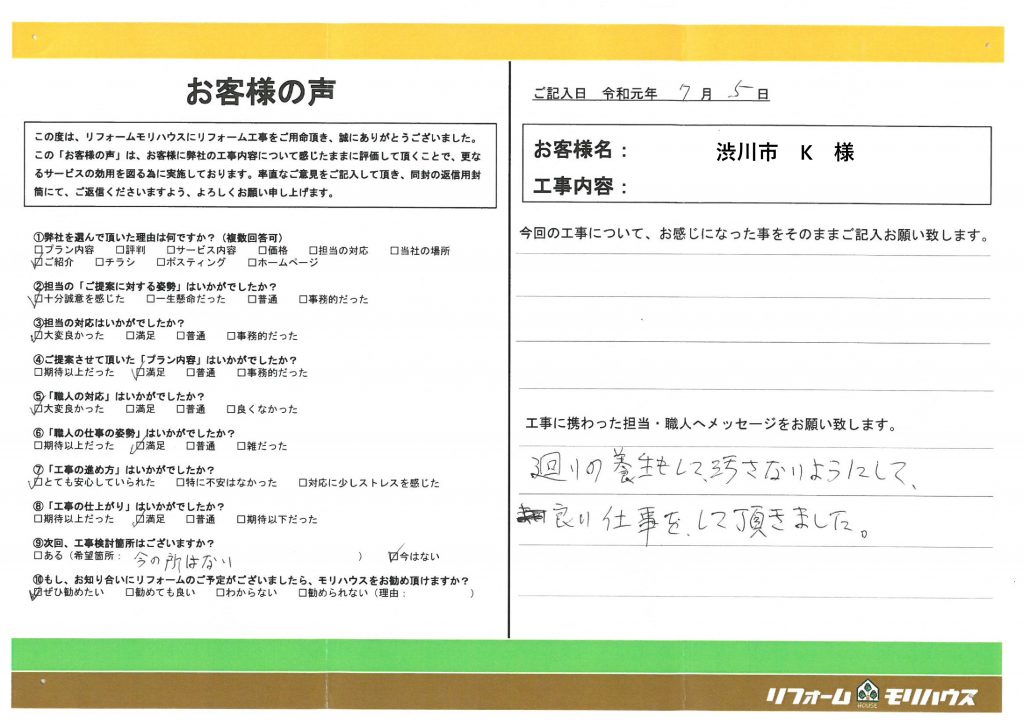 お客様の声
この度は、リフォームモリハウスにリフォーム工事をご用命頂き、誠にありがとうございました。
この「お客様の声」は、お客様に弊社の工事内容について感じたままに評価して頂くことで、更な
るサービスの効用を図る為に実施しております。率直なご意見をご記入して頂き、同封の返信用封
筒にて、ご返信くださいますよう、よろしくお願い申し上げます。
①弊社を選んで頂いた理由は何ですか?(複数回答可)
□プラン内容 □評判 □サービス内容 □価格 □担当の対応 □当社の場所
☑ご紹介 □チラシ □ポスティング □ホームページ
②担当の「ご提案に対する姿勢」はいかがでしたか?
☑十分誠意を感じた □一生懸命だった □普通 □事務的だった
③担当の対応はいかがでしたか?
☑大変良かった □満足 □普通 □事務的だった
④ご提案させて頂いた「プラン内容」はいかがでしたか?
□期待以上だった ☑満足 □普通 □事務的だった
⑤「職人の対応」はいかがでしたか?
☑大変良かった □満足 □普通 □良くなかった
⑥「職人の仕事の姿勢」はいかがでしたか?
□期待以上だった ☑満足 □普通 □雑だった
⑦「工事の進め方」はいかがでしたか?
☑とても安心していられた □特に不安はなかった □対応に少しストレスを感じた
⑧「工事の仕上がり」はいかがでしたか?
□期待以上だった ☑満足 □普通 □期待以下だった
⑨次回、工事検討箇所はございますか?
□ある(希望箇所: 今の所はない ) ☑今はない
⑩もし、お知り合いにリフォームのご予定がございましたら、モリハウスをお勧め頂けますか?
☑ぜひ勧めたい □勧めても良い □わからない □勧められない(理由: )
ご記入日 令和元年 7 月 5 日
お客様名: 渋川市 K 様
工事内容:
今回の工事について、お感じになった事をそのままご記入お願い致します。
工事に携わった担当・職人へメッセージをお願い致します。
廻りの養生もして、汚さないようにして、
良い仕事を、して頂きました。
リフォーム HOUSE モリハウス